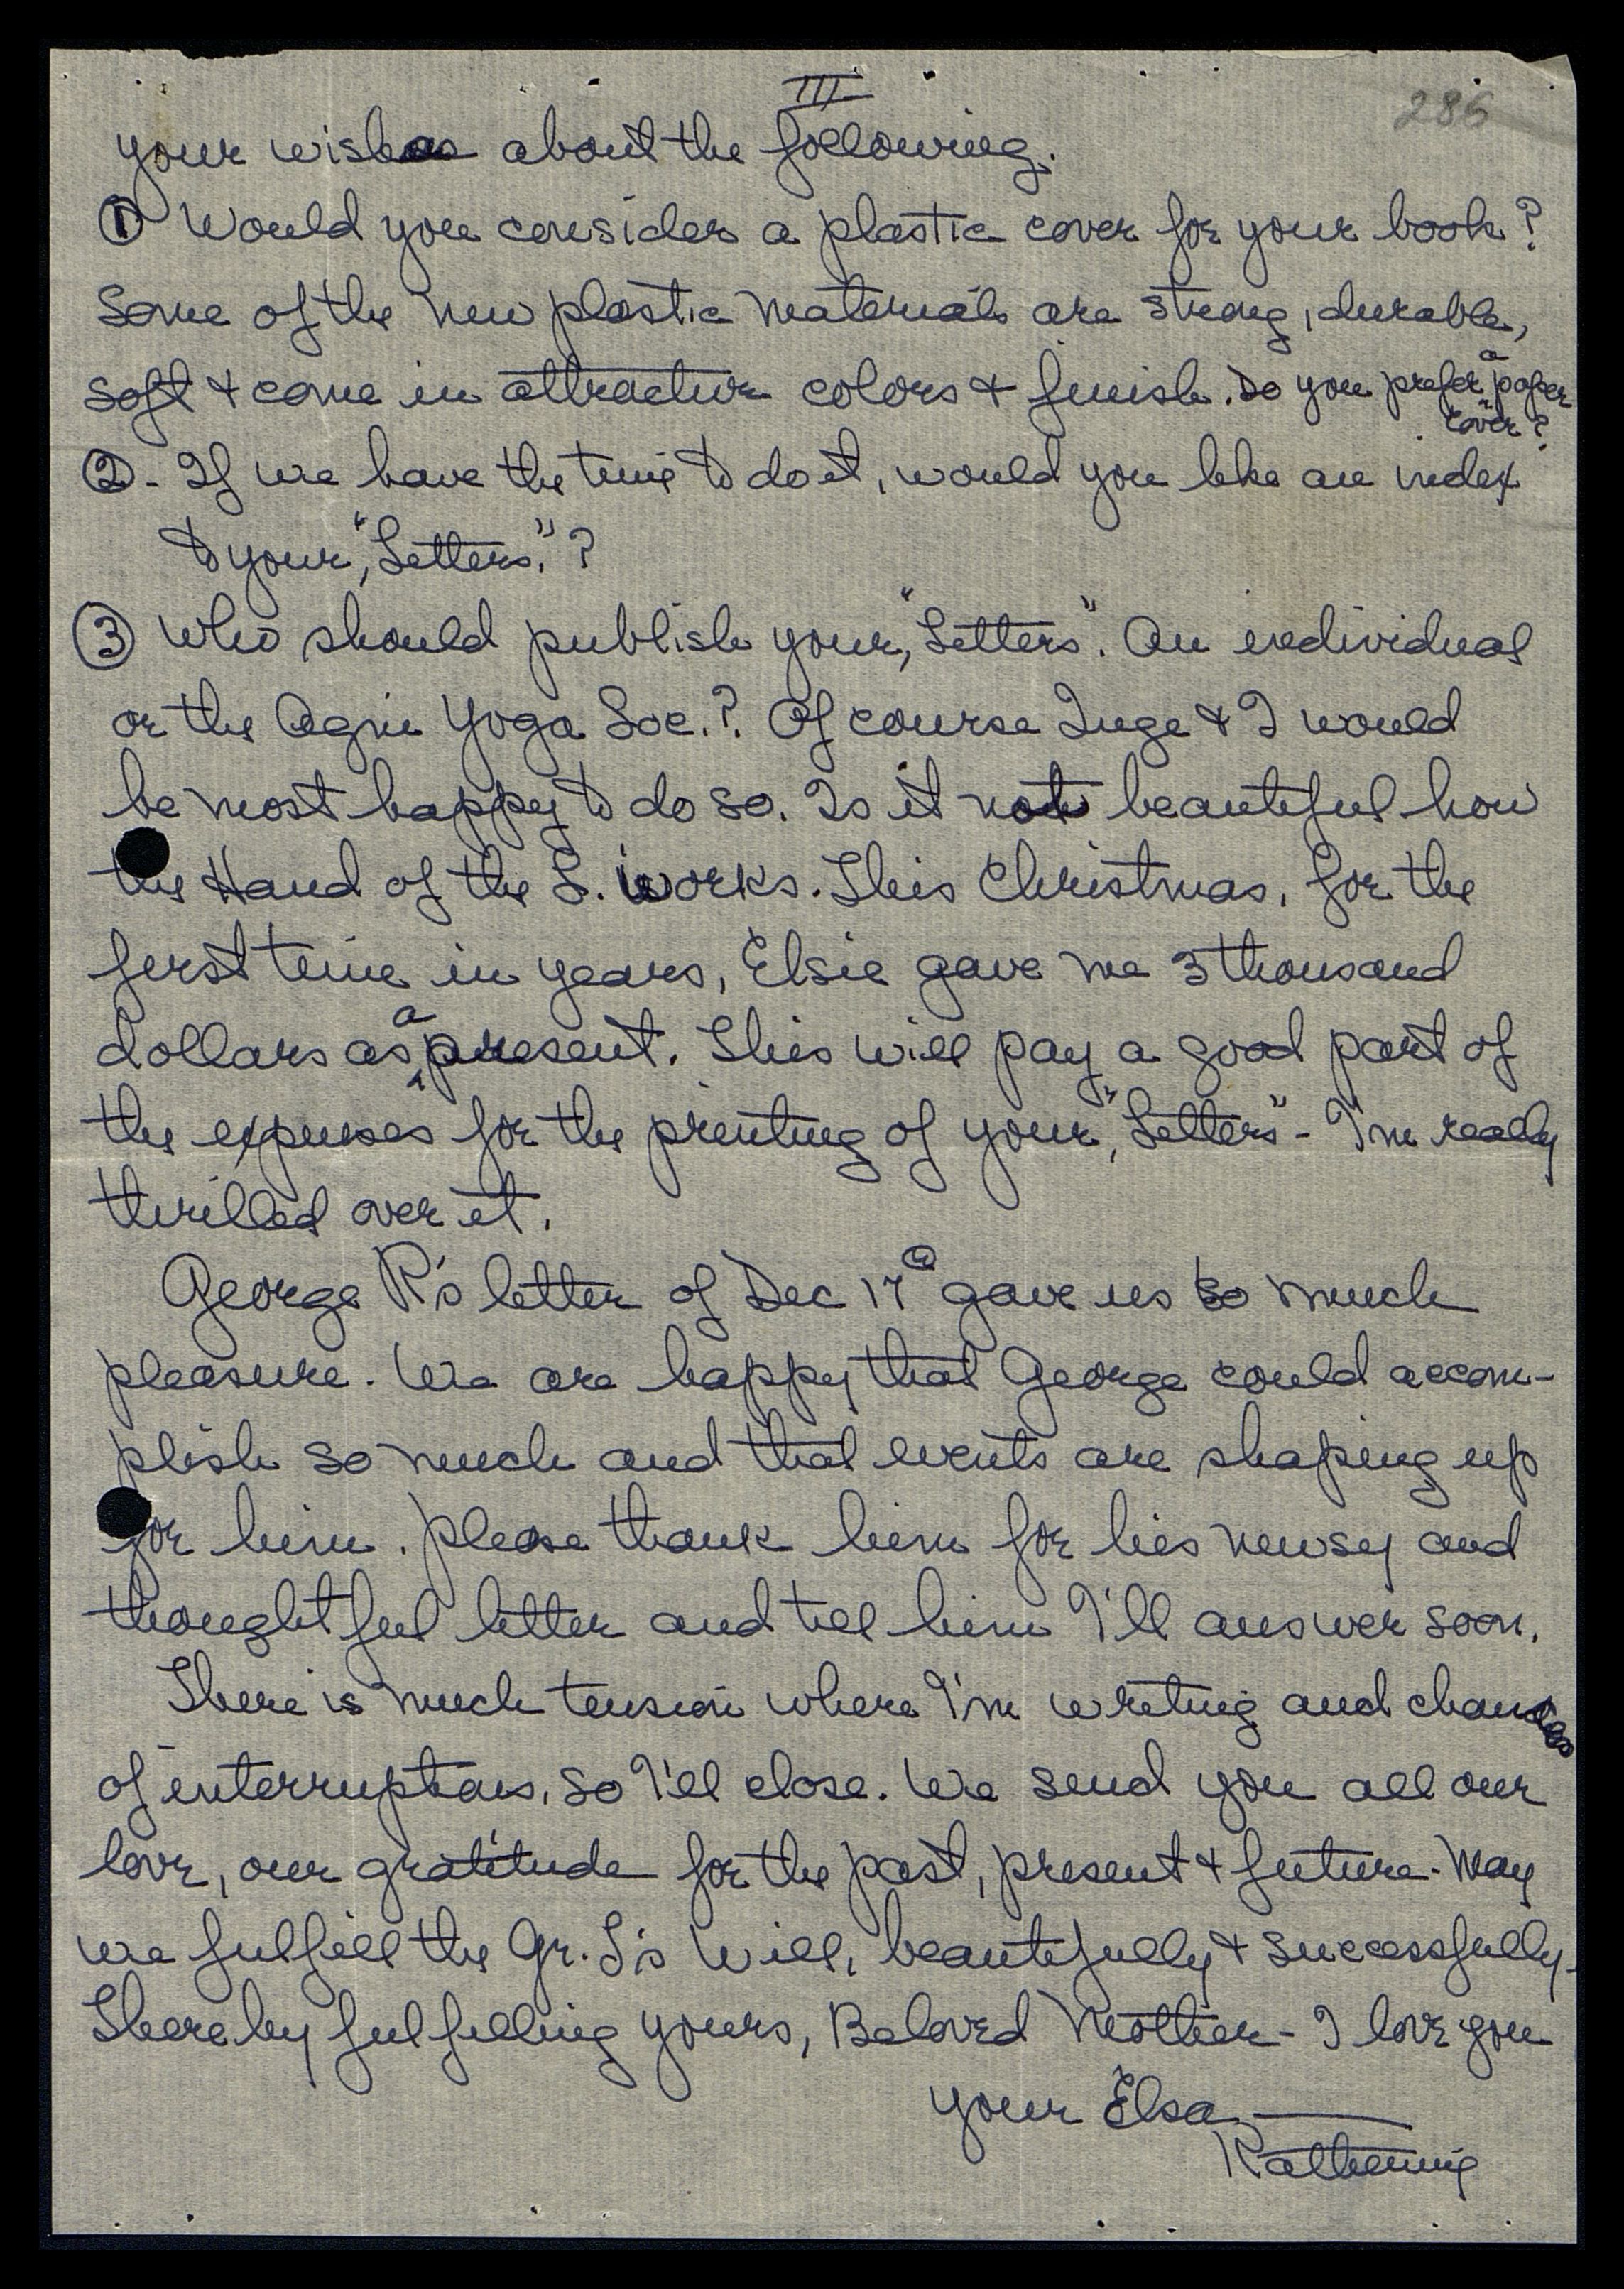 III
286
your wishes about the following.
① Would you consider a plastic cover for your book?
Some of the new plastic materials are strong, durable,
soft & come in attractive colors & finish. Do you prefer a paper
cover?
②- If we have the time to do it, would you like an index
to your, "Letters,"?
③ Who should publish your, "Letters". An individual
or the Agni Yoga Soc.? Of course Inge & I would
be most happy to do so. Is it not beautiful how
the Hand of the L. works. This Christmas, for the
first time in years, Elsie gave me 3 thousand
dollars as a present. This will pay a good part of
the expenses for the printing of your, "Letters" - I'm really
thrilled over it.
George R's letter of Dec 17 gave us so much
pleasure. We are happy that George could accom-
plish so much and that events are shaping up
for him. Please thank him for his newsy and
thoughtful letter and tell him I'll answer soon.
There is much tension where I'm writing and chances
of interruptions, so I'll close. We send you all our
love, our gratitude for the past, present & future. May
we fulfill the Gr. L's Will, beautifully & successfully.
Thereby fulfilling yours, Beloved Mother - I love you
your Elsa
Katherine